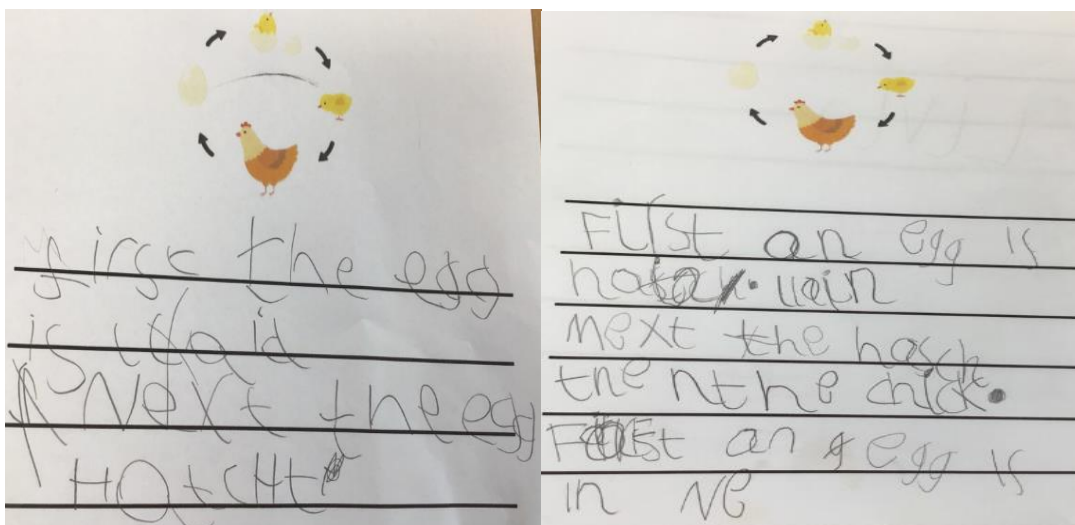 first the egg
is laid
Next the egg
HatcHt
First an egg is
Next the hasch
the nthe chick.
First an egg is
in Ne